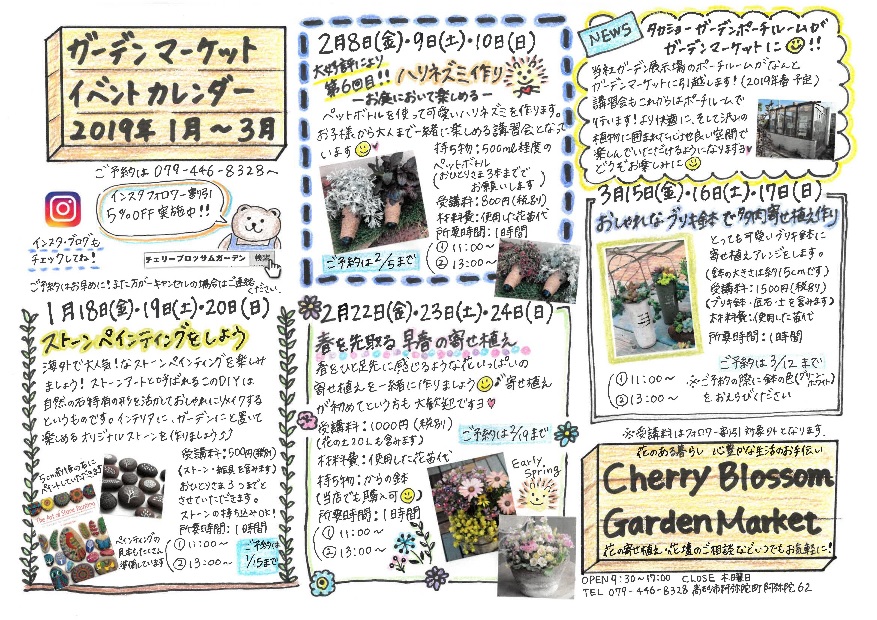 ガーデンマーケット
イベントカレンダー
2019年1月～3月
ご予約は 079-446-8328～
インスタフォロワー割引
5%OFF 実施中!!
インスタ・ブログも
チェックしてね!
チェリーブロッサムガーデン 検索
ご予約はお早めに!また万が一キャンセルの場合はご連絡
ください。
1月18日(金)・19日(土)・20日(日)
ストーンペインティングをしよう
海外で大人気!なストーンペインティングを楽しみ
ましょう!ストーンアートとも呼ばれるこのDIYは
自然の石特有の形を活かしておしゃれにリメイクする
というものです。インテリアに、ガーデンにと置いて
楽しめるオリジナルストーンを作りましょう♪
5cm前後の石に
ペイントしていただきます
受講料:500円(税別)
(ストーン・絵具を含みます)
おひとりさま3つまでと
させていただきます。
ストーンの持ち込みOK!
所要時間:1時間
① 11:00～
② 13:00～
ご予約は
1/15まで
The Art of Stone Painting
ペインティングの
見本もたくさん
準備しています
2月8日(金)・9日(土)・10日(日)
大好評により
第6回目!! ハリネズミ作り
ーお庭において楽しめるー
ペットボトルを使って可愛いハリネズミを作ります。
お子様から大人まで一緒に楽しめる講習会となって
います
持ち物:500ml程度の
ペットボトル
(おひとりさま3本までで
お願いします)
受講料:800円(税別)
材料費:使用した花苗代
所要時間:1時間
① 11:00～
② 13:00～
ご予約は2/5まで
2月22日(金)・23日(土)・24日(日)
春を先取る 早春の寄せ植え
春をひと足先に感じる様な花いっぱいの
寄せ植えを一緒に作りましょう 寄せ植え
が初めてという方も大歓迎ですヨ
受講料:1000円(税別)
(花の土20Lも含みます)
ご予約は2/19まで
材料費:使用した花苗代
持ち物:からの鉢
(当店でも購入可)
所要時間:1時間
① 11:00～
② 13:00～
Early
Spring
NEWS
タカショーガーデンポーチルームが
ガーデンマーケットに!!
当社ガーデン展示場のポーチルームがなんと
ガーデンマーケットに引越します!(2019年春予定)
講習会もこれからはポーチルームで
行います!より快適に、そして沢山の
植物に囲まれて心地良い空間で
楽しんでいただけるようになりますヨ
どうぞお楽しみに
3月15日(金)・16日(土)・17日(日)
おしゃれなブリキ鉢で多肉寄せ植え作り
とっても可愛いブリキ鉢に
寄せ植えアレンジをします。
(鉢の大きさは約15cmです)
受講料:1500円(税別)
(ブリキ鉢・底石・土を含みます)
材料費:使用した苗代
所要時間:1時間
ご予約は3/12まで
① 11:00～
② 13:00～
※ご予約の際に鉢の色(グリーンorホワイト)
をおえらびください
※受講料はフォロワー割引対象外となります.
花のある暮らし 心豊かな生活のお手伝い
Cherry Blossom
Garden Market
花の寄せ植え・花壇のご相談などいつでもお気軽に!
OPEN 9:30～17:00 CLOSE 木曜日
TEL 079-446-8328 高砂市阿弥陀町阿弥陀62